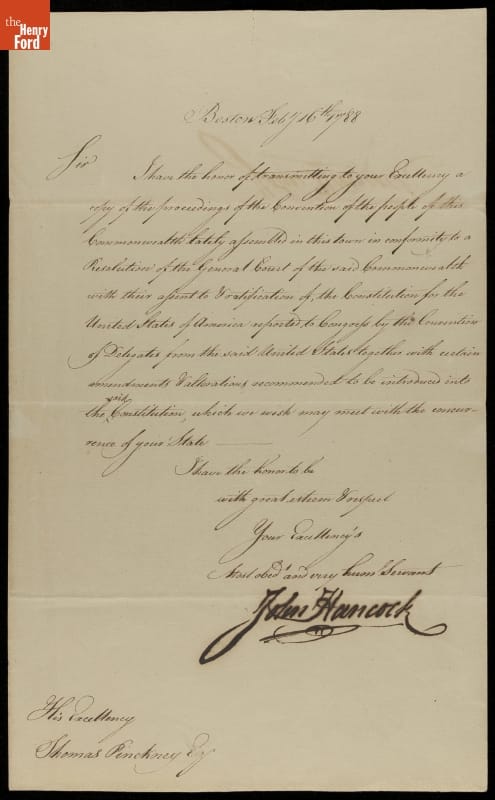 the
Henry
Ford
Boston Feby 16th 1788
Sir
I have the honor of transmitting to your Excellency a
copy of the proceedings of the Convention of the people of this
Commonwealth lately assembled in this town in conformity to a
Resolution of the General Court of the said Commonwealth
with their assent to & ratification of, the Constitution for the
United States of America reported to Congress by the Convention
of Delegates from the said United States, together with certain
amendments & alterations recommended to be introduced into
the said Constitution, which we wish may meet with the concur-
rence of your State
I have the honor to be
with great esteem & respect
Your Excellency's
Most obedt and very humb Servant
John Hancock
His Excellency
Thomas Pinckney Esq